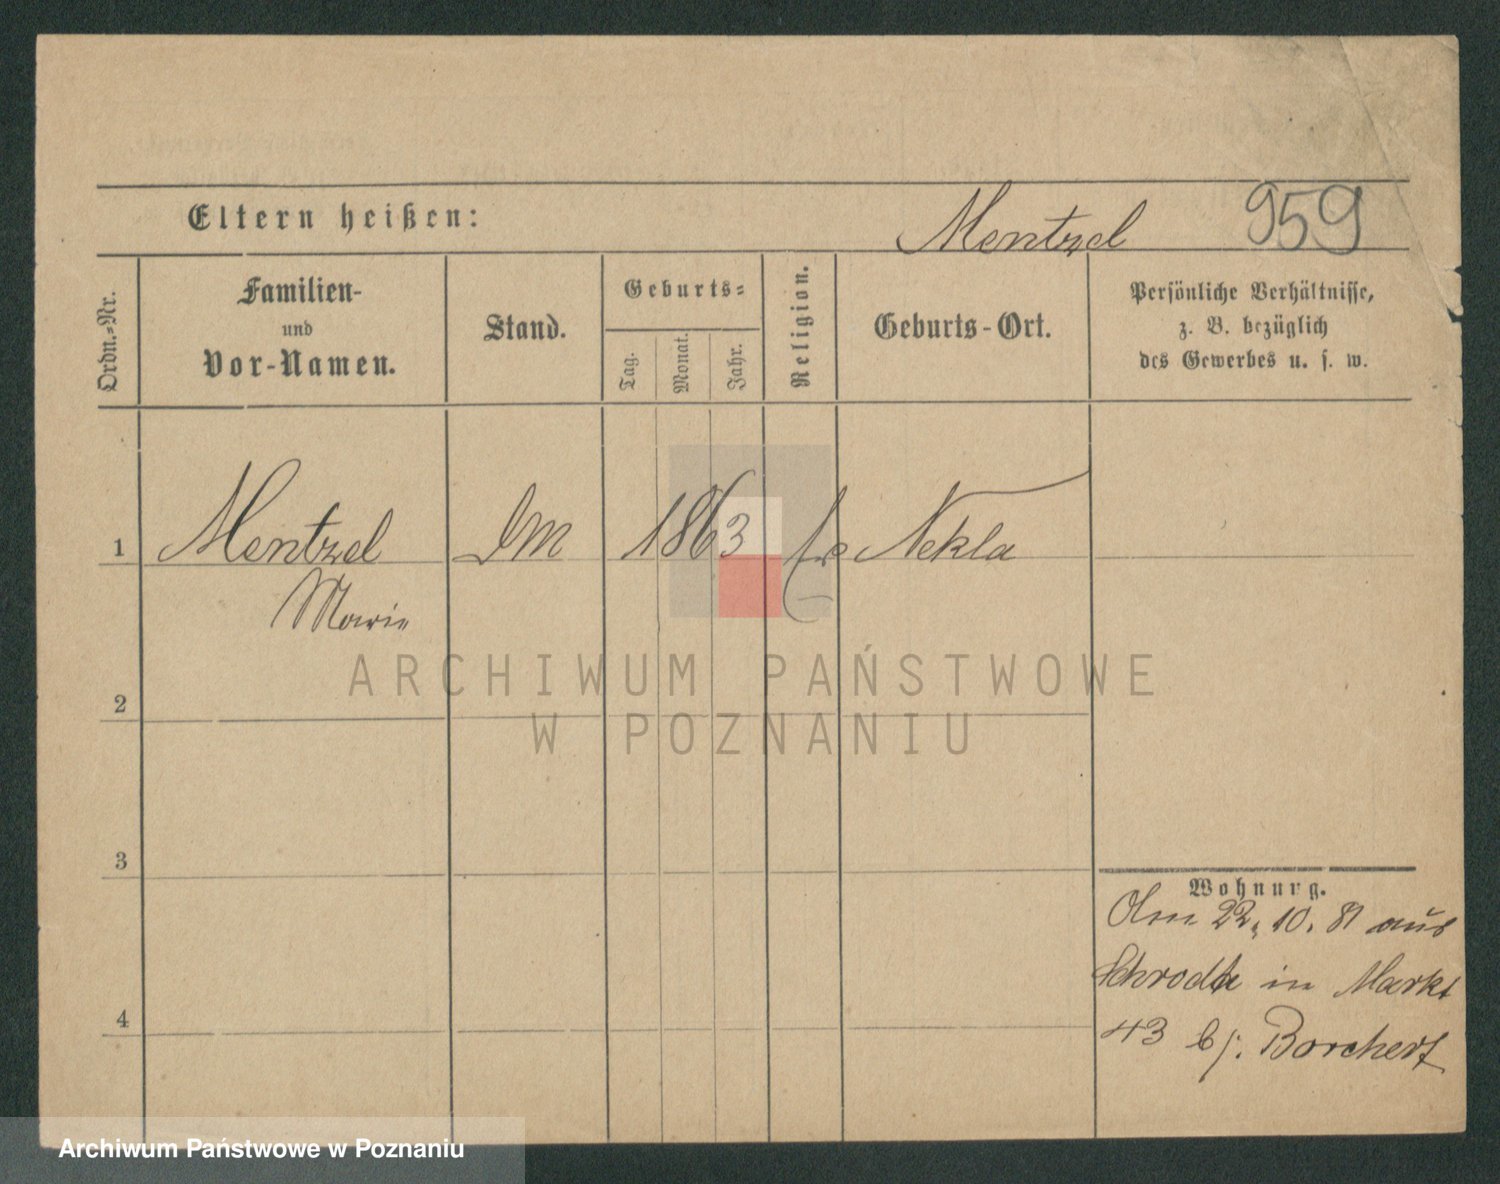 Eltern heißen:
Mentzel 959
Ordn.-Nr.
Familien-
und
Vor-Namen.
Stand.
Geburts-
Tag.
Monat.
Jahr.
Religion.
Geburts-Ort.
Persönliche Verhältnisse,
z. B. bezüglich
des Gewerbes u. s. w.
1 Mentzel DM 1863 Nekla
Marie
2
3
4
Wohnung.
22. 10. 81 aus
Schroda in Markt
43 bj. Borchert
ARCHIWUM PAŃSTWOWE
W POZNANIU
Archiwum Państwowe w Poznaniu